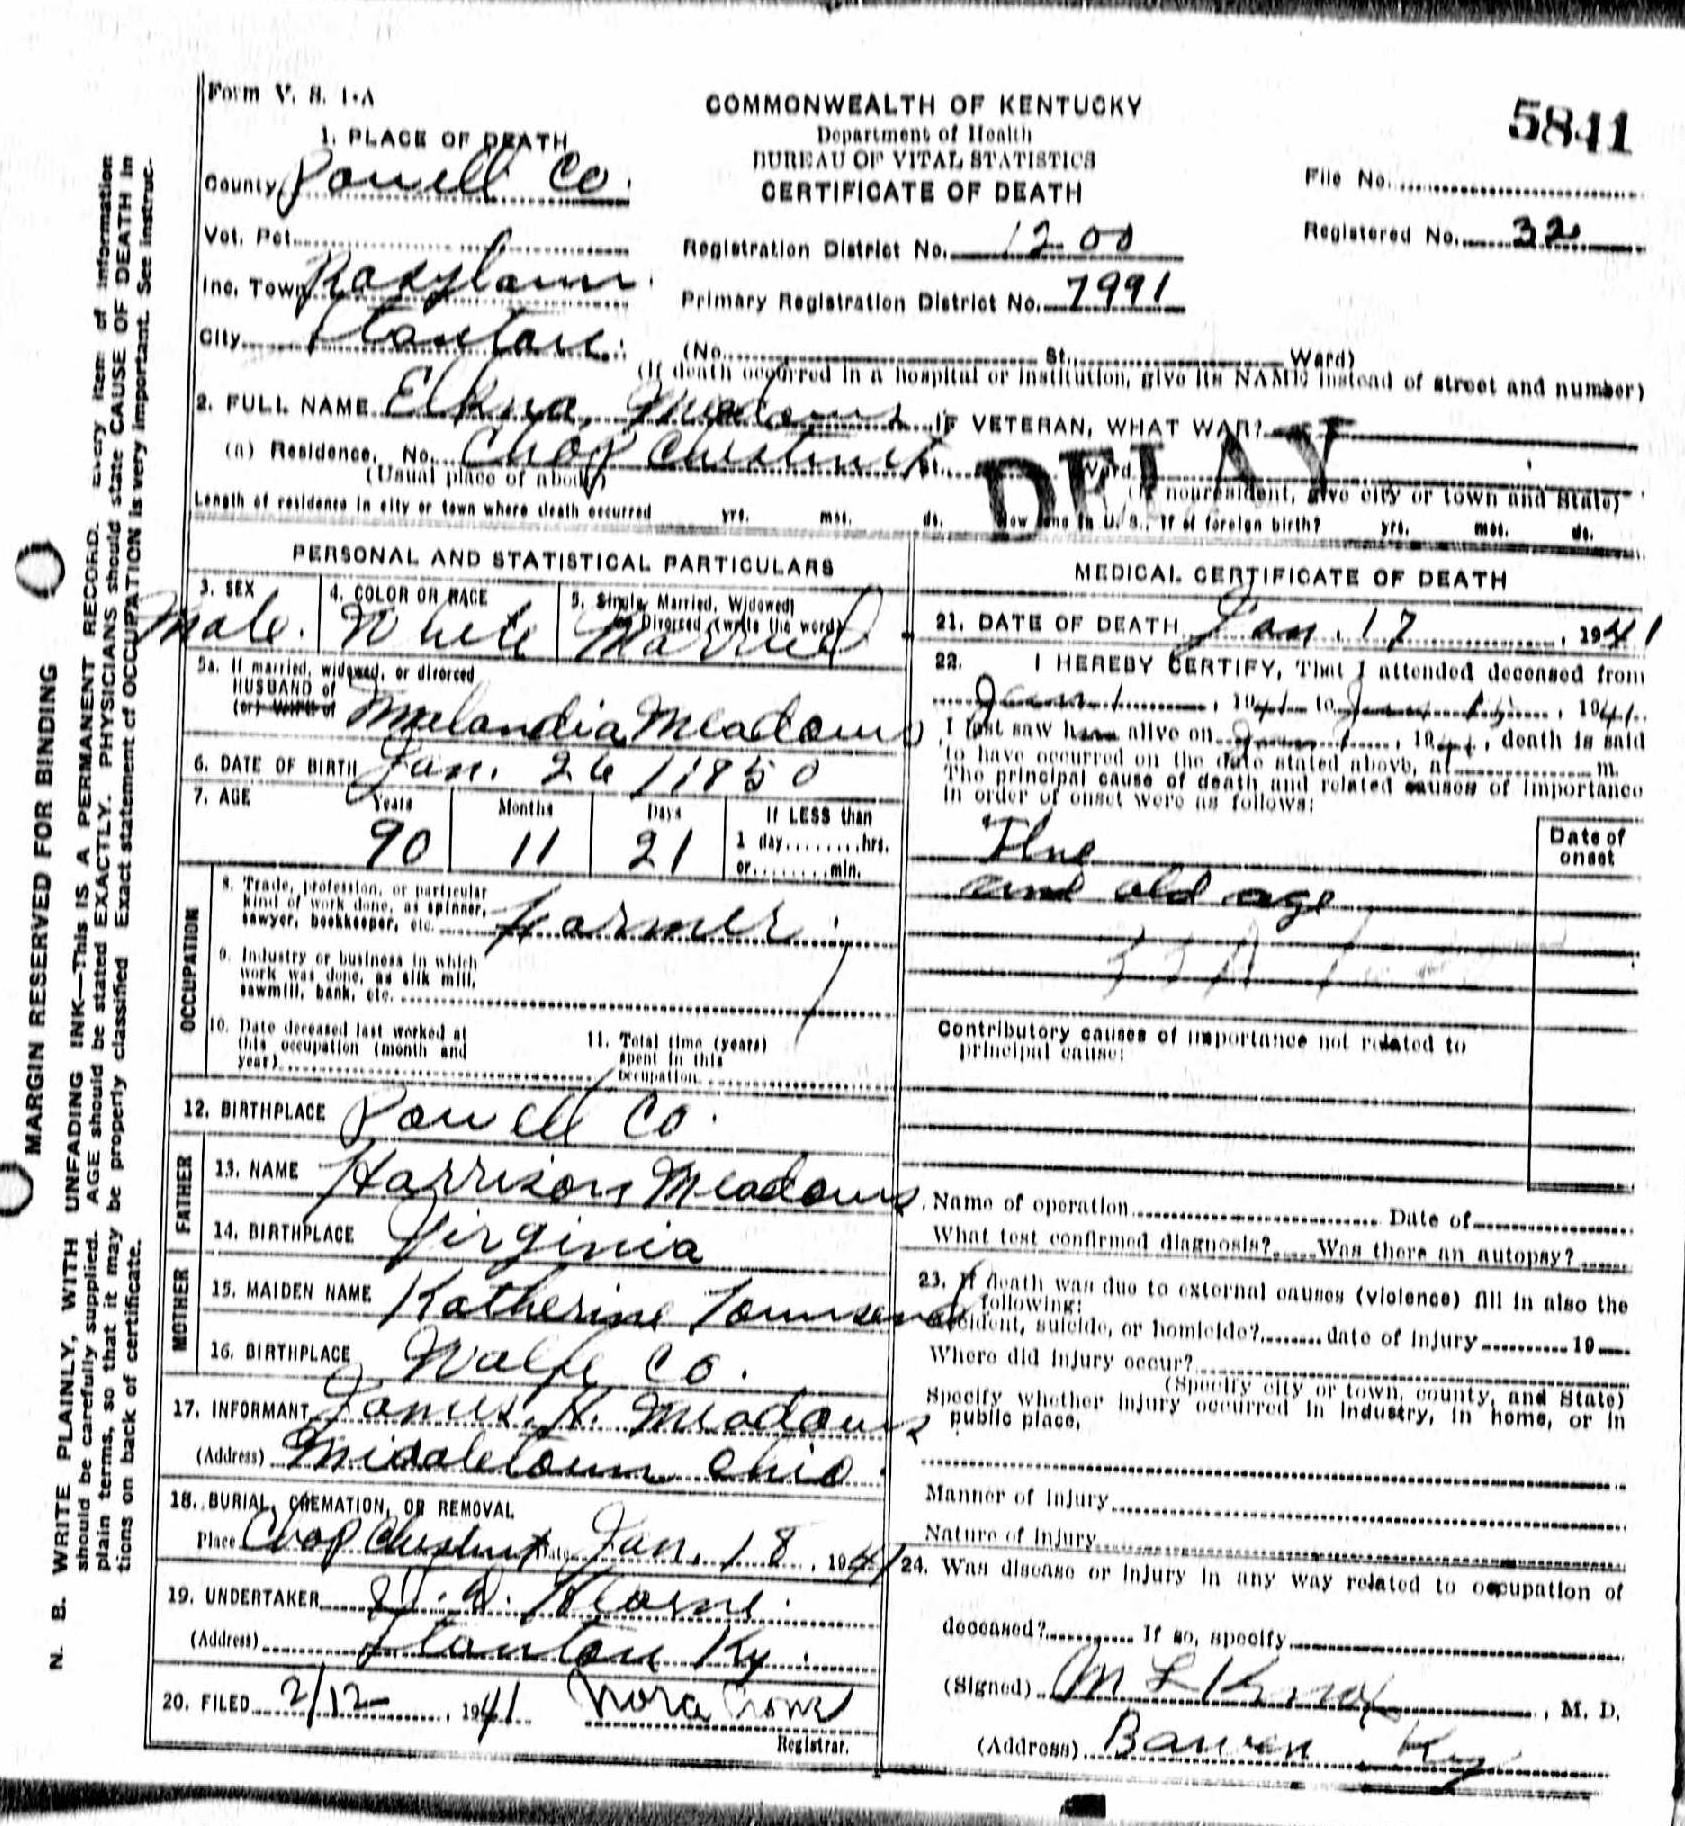 Form V. S. 1-A
COMMONWEALTH OF KENTUCKY
Department of Health
BUREAU OF VITAL STATISTICS
CERTIFICATE OF DEATH
5841
File No.
Registered No. 32
1. PLACE OF DEATH
County Powell Co.
Vot. Pct.
Registration District No. 1200
Inc. Town Rosslaun
Primary Registration District No. 7991
City Stanton
(No. St. Ward)
(If death occurred in a hospital or institution, give its NAME instead of street and number)
2. FULL NAME Elkna Meadows IF VETERAN, WHAT WAR?
(a) Residence. No. Chop Chestnut St. Ward
(Usual place of abode) (If nonresident, give city or town and State)
DELAY
Length of residence in city or town where death occurred yrs. mos. ds. How long in U. S., if of foreign birth? yrs. mos. ds.
PERSONAL AND STATISTICAL PARTICULARS
3. SEX
Male.
4. COLOR OR RACE
White
5. Single, Married, Widowed,
or Divorced (write the word)
Married
5a. If married, widowed, or divorced
HUSBAND of
(or) WIFE of Malandia Meadows
6. DATE OF BIRTH Jan. 26 1850
7. AGE Years Months Days If LESS than
90 11 21 1 day........hrs.
or........min.
OCCUPATION
8. Trade, profession, or particular
kind of work done, as spinner,
sawyer, bookkeeper, etc. Farmer
9. Industry or business in which
work was done, as silk mill,
sawmill, bank, etc.
10. Date deceased last worked at
this occupation (month and
year)
11. Total time (years)
spent in this
occupation
12. BIRTHPLACE Powell Co.
FATHER
13. NAME Harrison Meadows
14. BIRTHPLACE Virginia
MOTHER
15. MAIDEN NAME Katherine Townsend
16. BIRTHPLACE Wolfe Co.
17. INFORMANT James. H. Meadows
(Address) Middletown Ohio
18. BURIAL, CREMATION, OR REMOVAL
Place Chop Chestnut Date Jan. 18, 1941
19. UNDERTAKER
(Address) Stanton Ky.
20. FILED 2/12, 1941 Nora
Registrar.
MEDICAL CERTIFICATE OF DEATH
21. DATE OF DEATH Jan. 17, 1941
22. I HEREBY CERTIFY, That I attended deceased from
Jan 1, 1941 to Jan 17, 1941.
I last saw him alive on Jan 1, 1941, death is said
to have occurred on the date stated above, at m.
The principal cause of death and related causes of importance
in order of onset were as follows:
Date of
onset
Flue
and old age
Contributory causes of importance not related to
principal cause:
Name of operation Date of
What test confirmed diagnosis? Was there an autopsy?
23. If death was due to external causes (violence) fill in also the
following:
Accident, suicide, or homicide? date of injury 19
Where did injury occur?
(Specify city or town, county, and State)
Specify whether injury occurred in industry, in home, or in
public place.
Manner of Injury
Nature of Injury
24. Was disease or injury in any way related to occupation of
deceased? If so, specify
(Signed) M L Knox, M. D.
(Address) Bowen Ky
MARGIN RESERVED FOR BINDING
N. B. WRITE PLAINLY, WITH UNFADING INK—This IS A PERMANENT RECORD. Every item of information
should be carefully supplied. AGE should be stated EXACTLY. PHYSICIANS should state CAUSE OF DEATH in
plain terms, so that it may be properly classified. Exact statement of OCCUPATION is very important. See instruc-
tions on back of certificate.